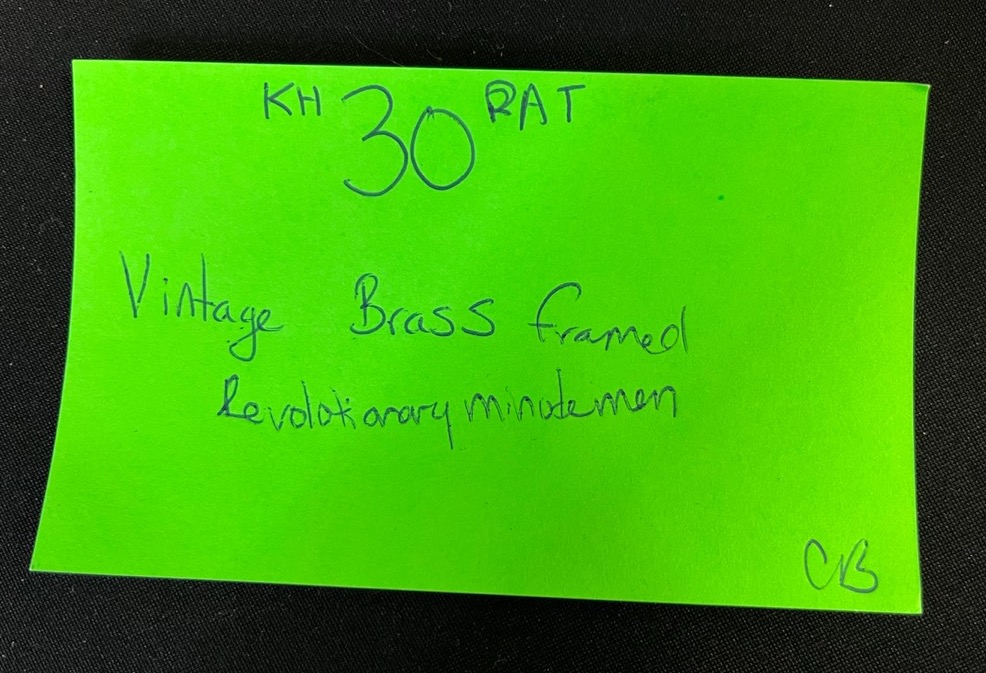 KH 30 RAT
Vintage Brass framed
Revolutionary minutemen
CB